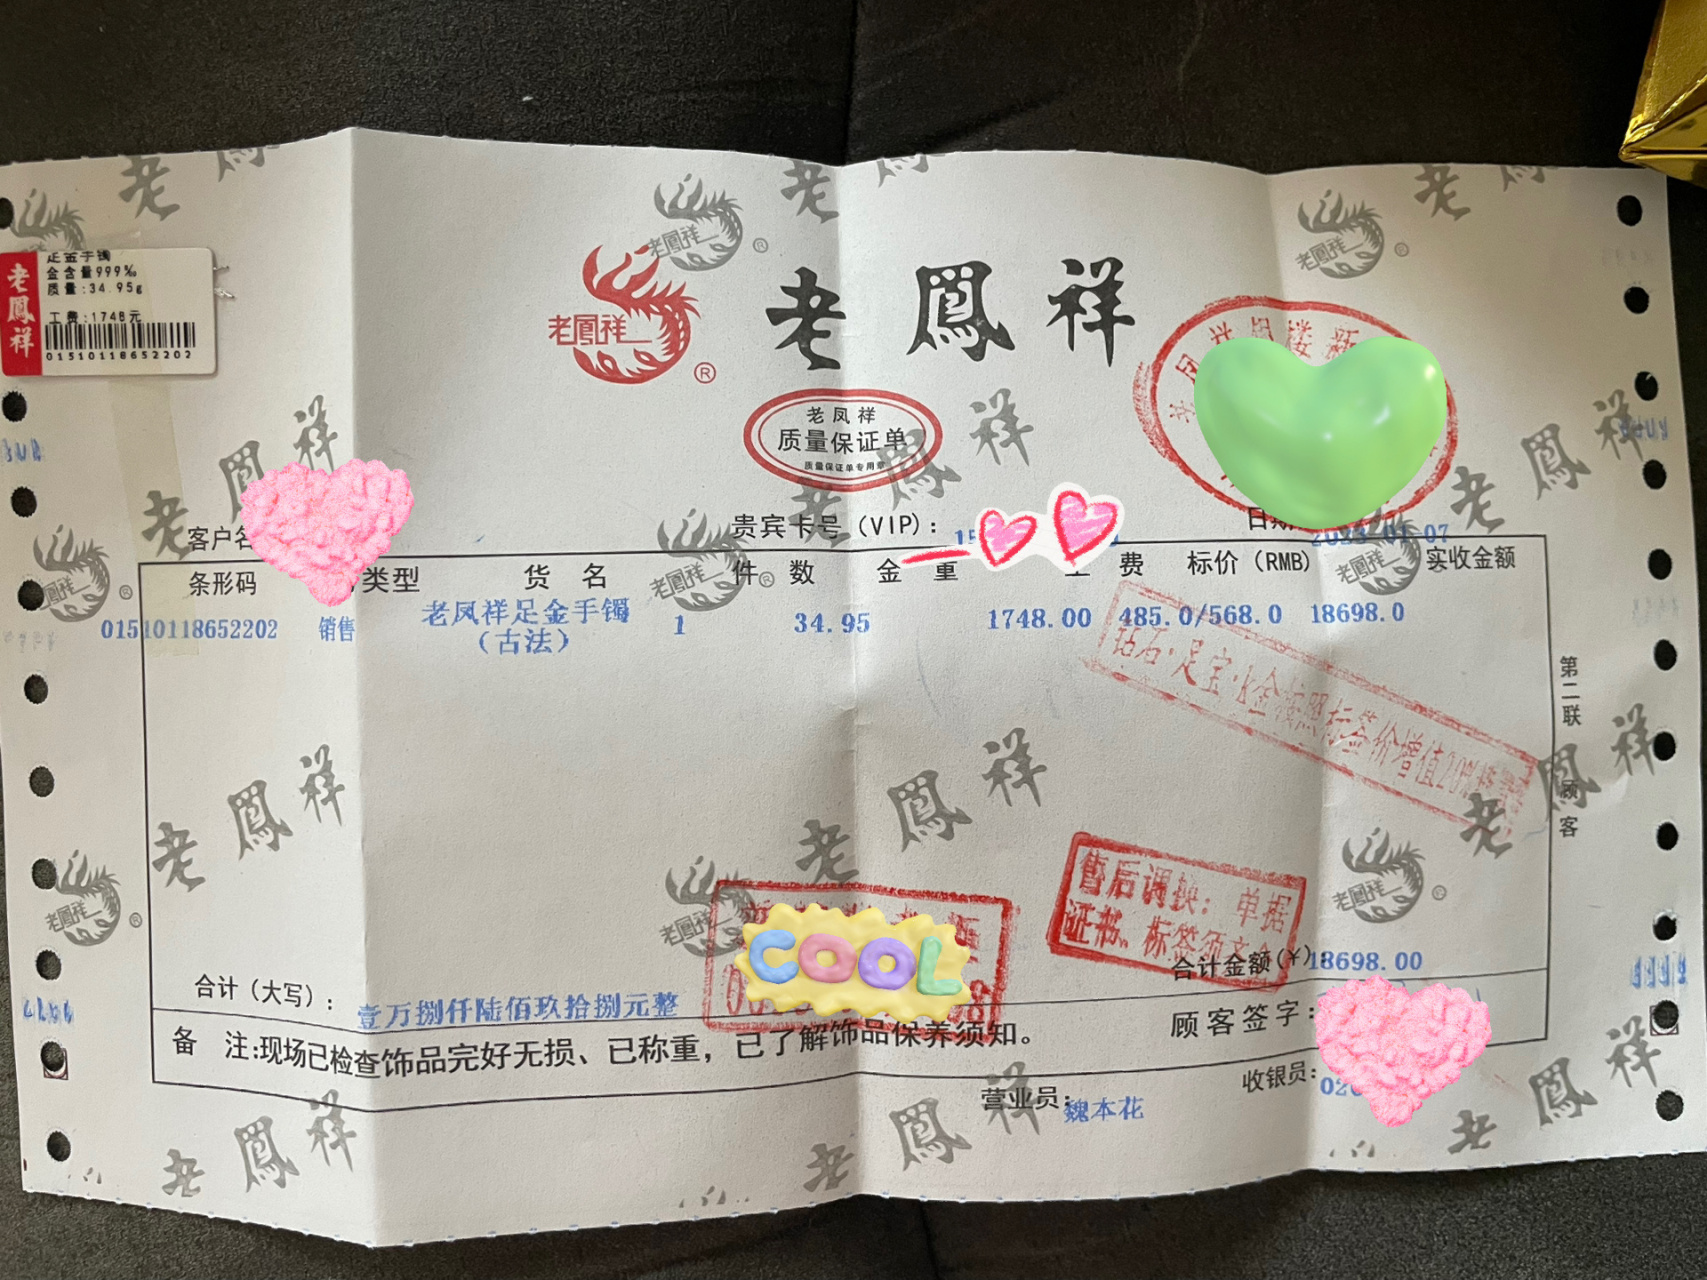 老鳳祥
足金手镯
金含量999‰
质量:34.95g
工费:1748元
01510118652202
老鳳祥
老鳳祥
®
老凤祥
质量保证单
质量保证单专用章
客户名
贵宾卡号（VIP）：
条形码 类型 货名 件数 金重 工费 标价（RMB） 实收金额
01510118652202 销售 老凤祥足金手镯 1 34.95 1748.00 485.0/568.0 18698.0
（古法）
钻石·足宝·k金按照标签价增值20%
第二联 顾客
售后调换：单据
证书、标签须齐全
COOL
合计（大写）： 壹万捌仟陆佰玖拾捌元整
合计金额(¥): 18698.00
备 注:现场已检查饰品完好无损、已称重，已了解饰品保养须知。
顾客签字:
营业员: 魏本花
收银员: